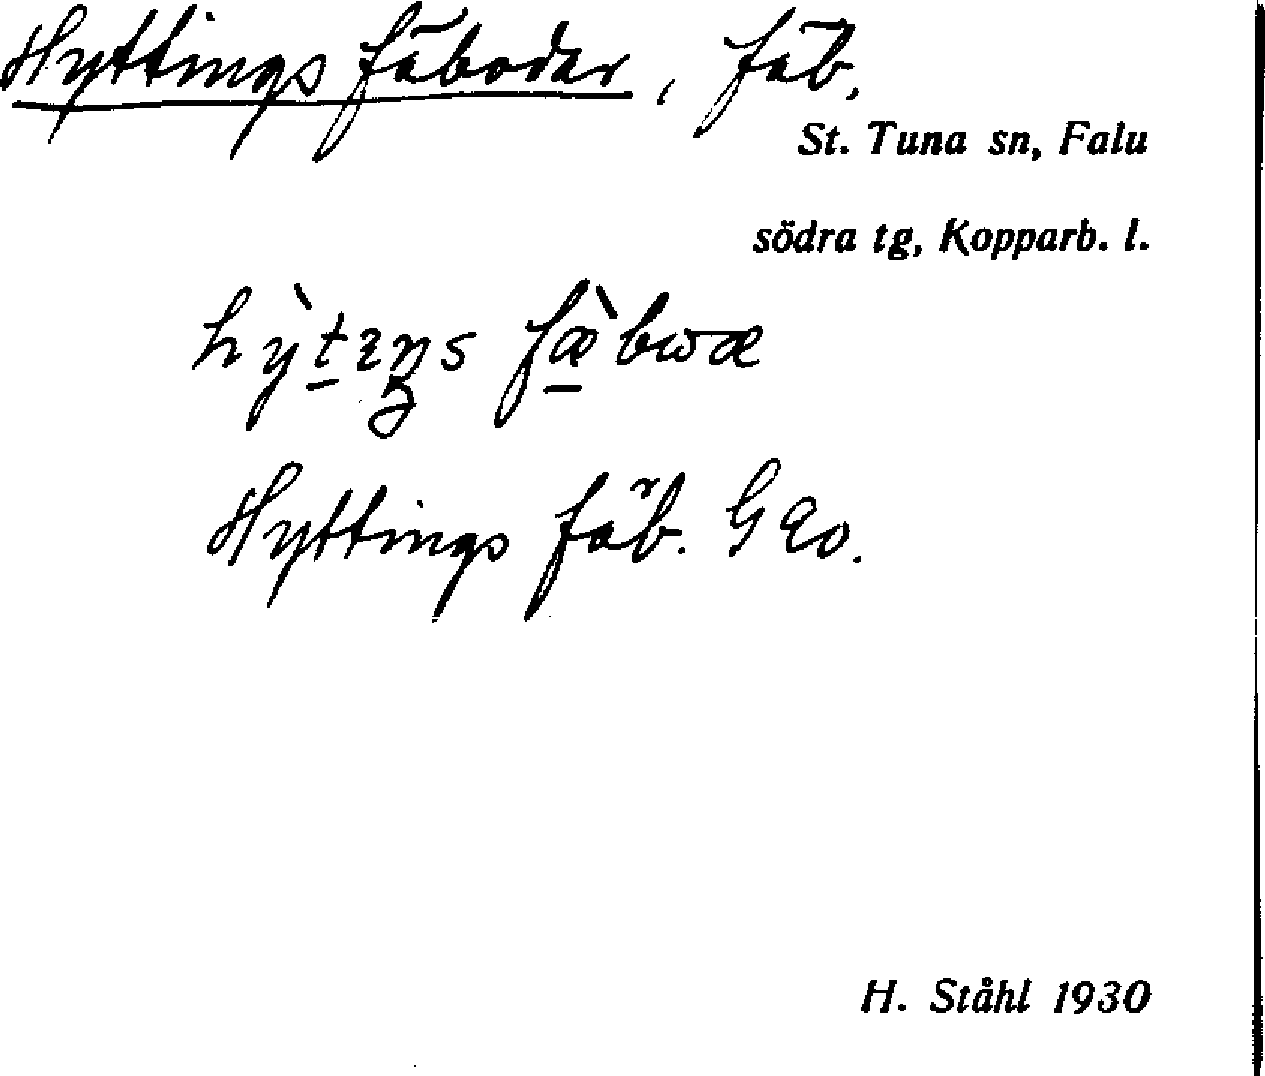 Hyttings fäboder, fäb.
St. Tuna sn, Falu
södra tg, Kopparb. l.
hỳt̠ɪŋs fæ̠̀bωæ
Hyttings fäb. GEo.
H. Ståhl 1930